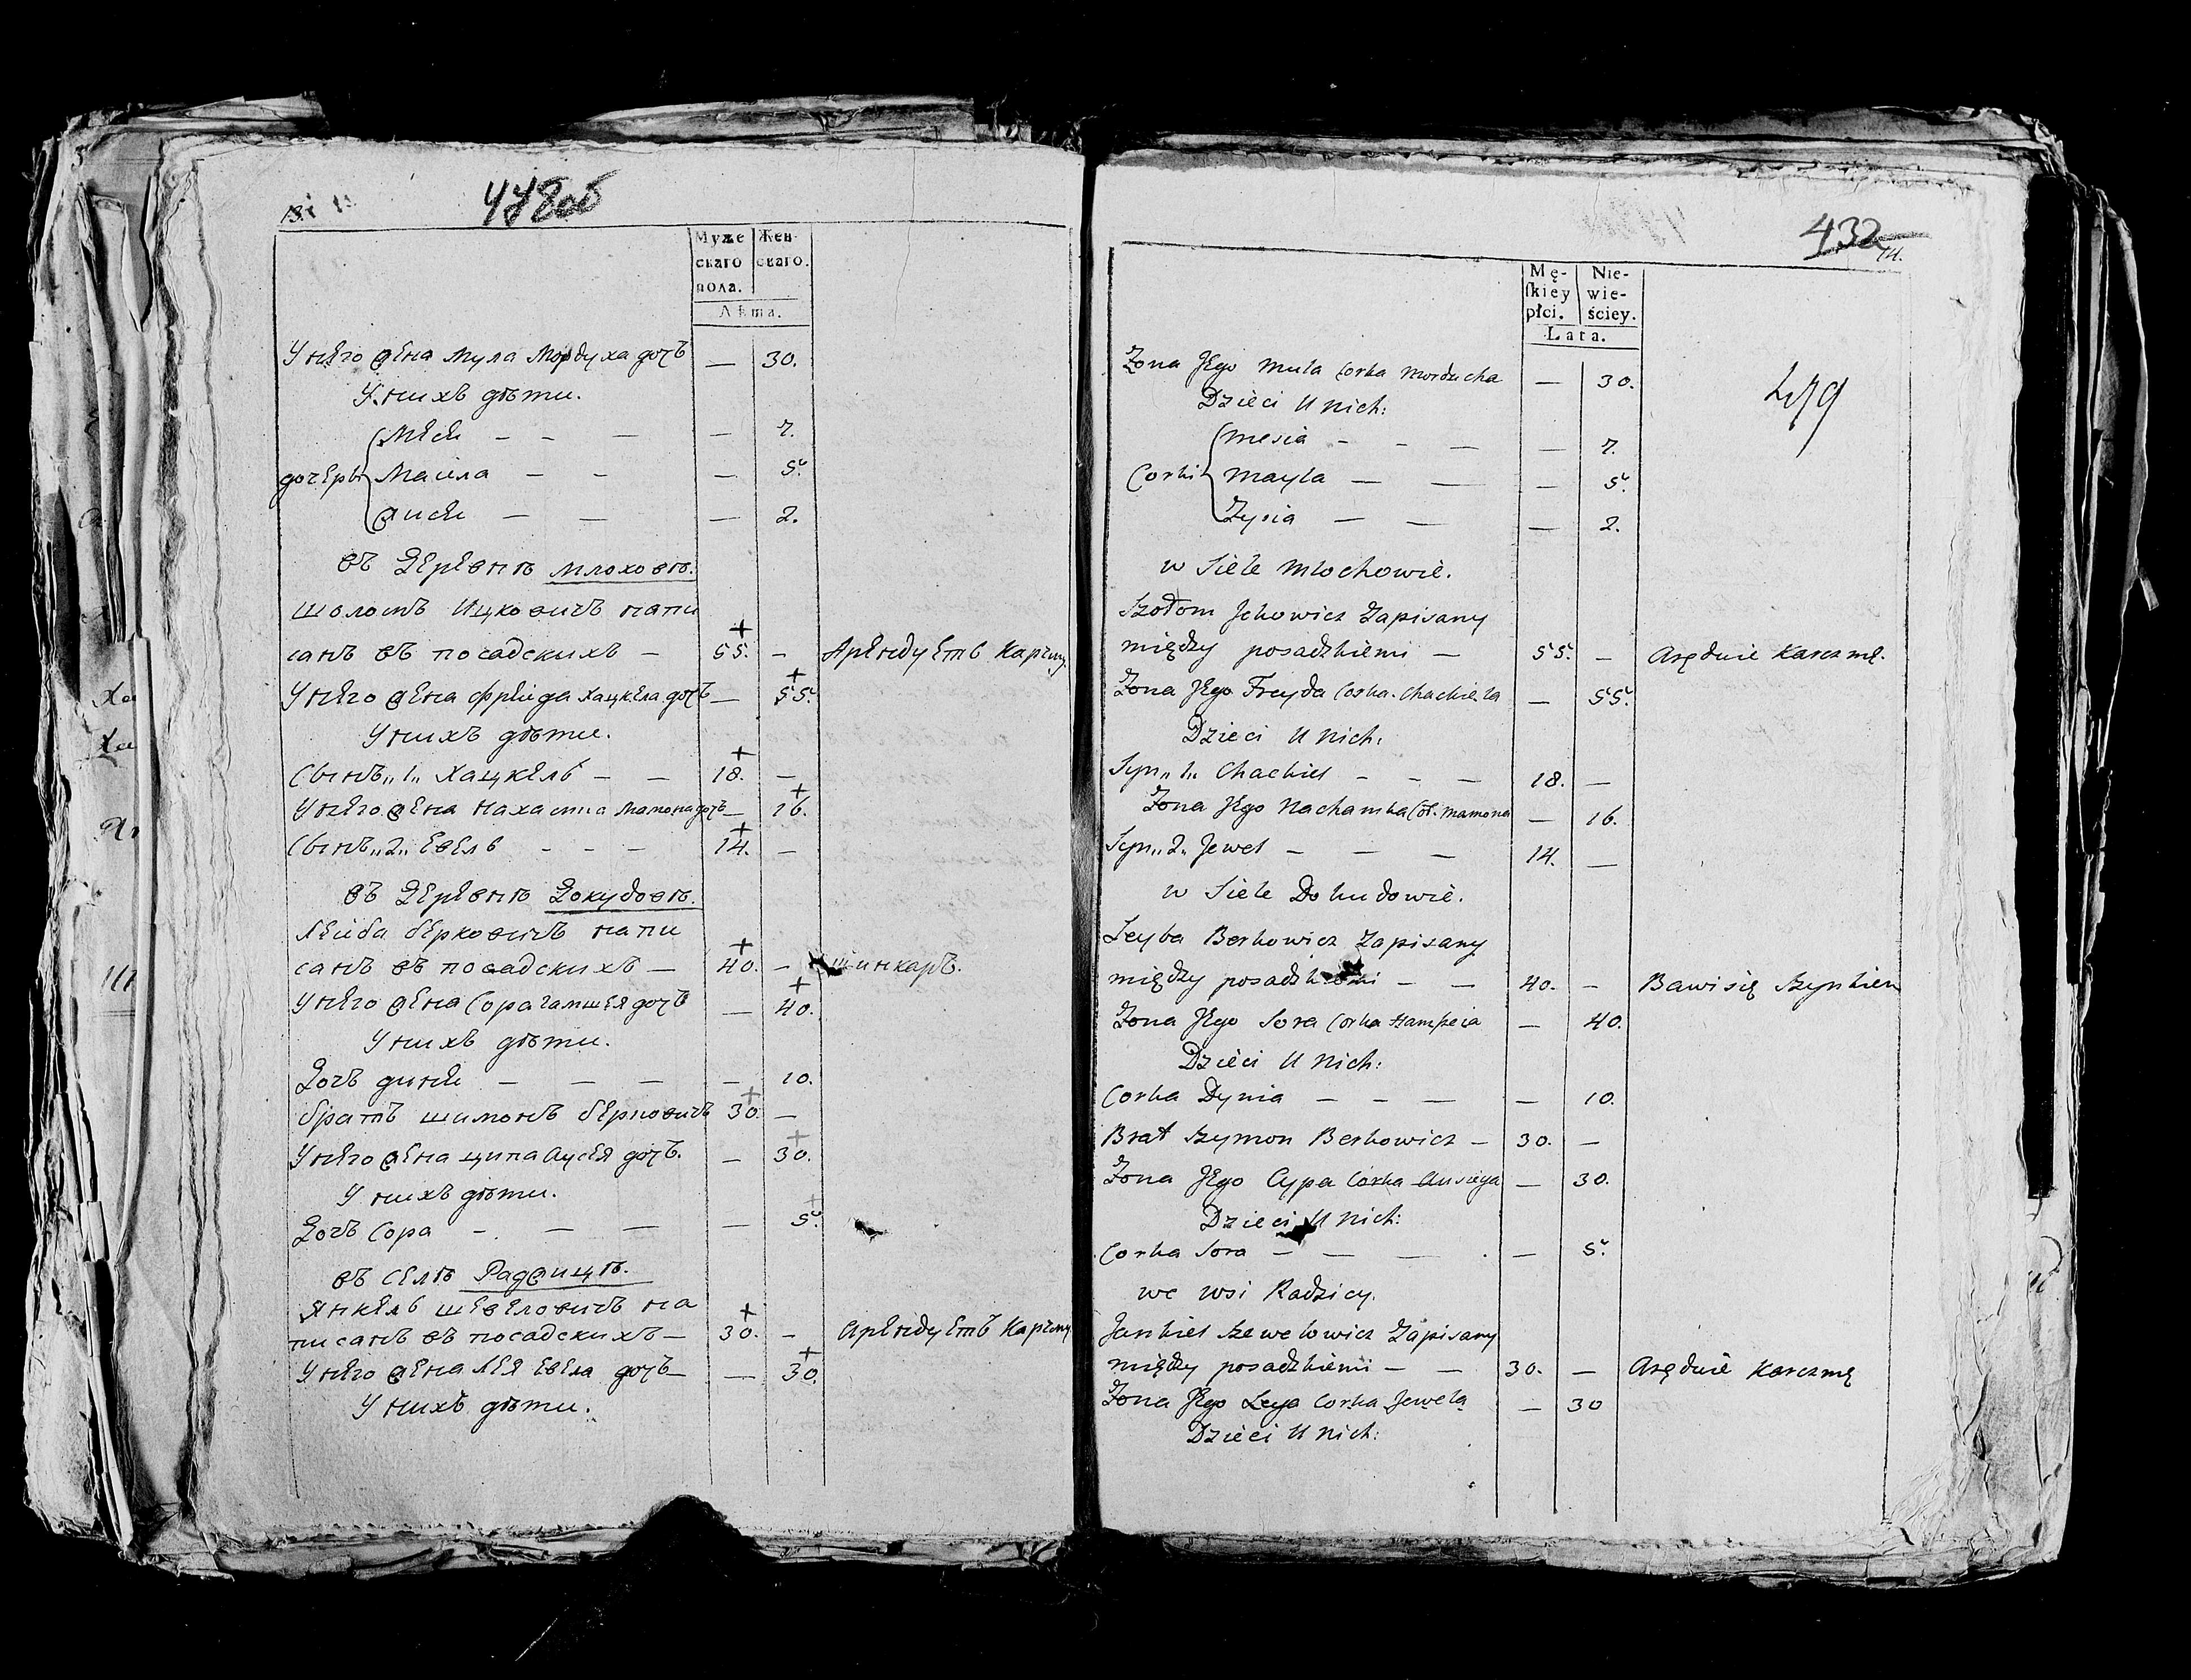 13.
478об
Муже Жен-
скаго скаго.
пола.
Лѣта.
У него жена Мула Мордуха дочъ — 30.
У нихъ дѣти.
Меся — — — — 7.
дочери Маила — — — 5.
Жися — — — 2.
въ Деревнѣ Млоховѣ.
Шоломъ Ицковичъ напи
санъ въ посадскихъ — 55. — Арендуетъ Карчму.
У него жена Фреида Хацкеля дочъ — 55.
У нихъ дѣти.
Сынъ „1„ Хацкель — — 18. —
У него жена Нахамка Мамона дочъ — 16.
Сынъ „2„ Евель - - - 14. —
въ Деревнѣ Докудовѣ.
Леиба Берковичъ напи
санъ въ посадскихъ — 40. — шинкаръ.
У него жена Сора Гамшея дочъ — 40.
У нихъ дѣти.
Дочъ Диня — — — — 10.
братъ Шимонъ Берковичъ 30. —
У него жена Ципа Аусея дочъ. — 30.
У нихъ дѣти.
Дочъ Сора — — — — 5.
въ Селѣ Радзицѣ.
Янкель Шевеловичъ на
писанъ въ посадскихъ — 30. — Арендуетъ Карчму
У него жена Лея Евеля дочъ — — 30.
У нихъ дѣти.
432
14.
Mę- Nie-
ſkiey wie-
płci. ściey.
Lata.
479
Żona Jego Muła Corka Morducha — 30.
Dzieci U nich:
Mesia - - — — 7.
Corki Mayla — — — 5.
Żysia — — — 2.
w Siele Młochowie.
Szołom Jckowicz Zapisany
między posadzkiemi — 55. — Aręduie Karczmę.
Żona Jego Freyda Corka Chackiela — 55.
Dzieci U nich:
Syn „1„ Chackiel - - — 18. —
Żona Jego Nachamka Cor. Mamona — 16.
Syn „2„ Jewel — — — 14. —
w Siele Dokudowie.
Leyba Berkowicz Zapisany
między posadzkiemi — — 40. — Bawi się Szynkiem
Żona Jego Sora Corka Hampeia — 40.
Dzieci U nich:
Corka Dynia — — — — 10.
Brat Szymon Berkowicz — 30. —
Żona Jego Cypa Corka Ausieya — 30.
Dzieci U nich:
Corka Sora — — — — 5.
we wsi Radzicy.
Jankiel Szewelowicz Zapisany
między posadzkiemi — — 30. — Aręduie Karczmę
Żona Jego Leya Corka Jewela — 30
Dzieci U nich: